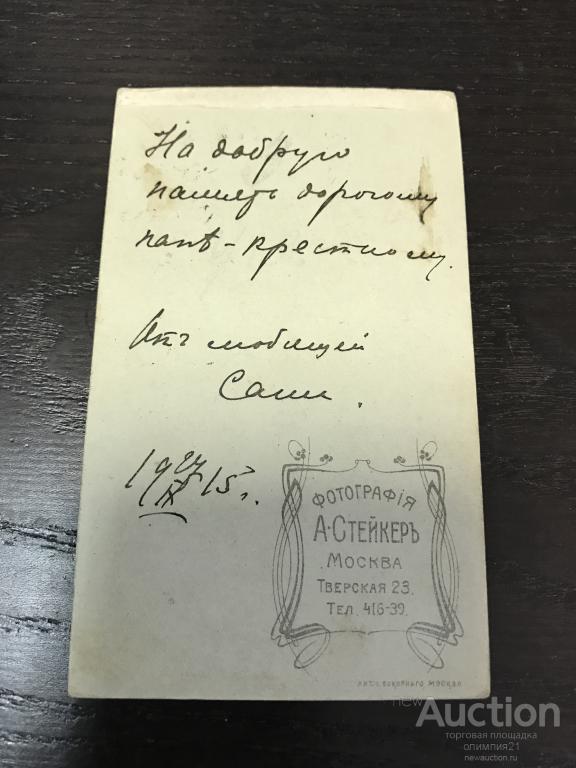 На добрую
память дорогому
папѣ-крестному.
Отъ любящей
Саши.
19 27/IX 15 г.
ФОТОГРАФІЯ
А·СТЕЙКЕРЪ
МОСКВА
ТВЕРСКАЯ 23.
ТЕЛ. 416-39.
МОСКВА
new
Auction
торговая площадка
олимпия21
newauction.ru